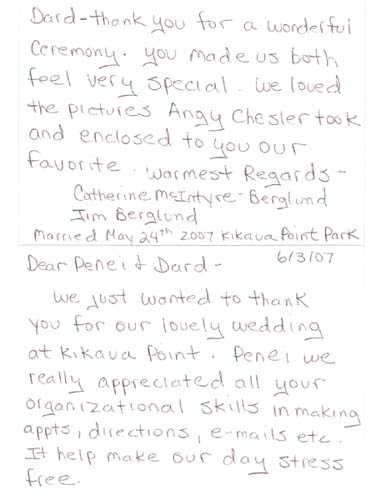 Dard-thank you for a wonderful
Ceremony. you made us both
feel very special. we loved
the pictures Angy Chesler took
and enclosed to you our
favorite. warmest Regards-
Catherine McIntyre-Berglund
Jim Berglund
Married May 24th 2007 Kikaua Point Park
Dear Penei & Dard- 6/3/07
we just wanted to thank
you for our lovely wedding
at Kikaua Point. Penei we
really appreciated all your
organizational skills in making
appts, directions, e-mails etc.
It help make our day stress
free.